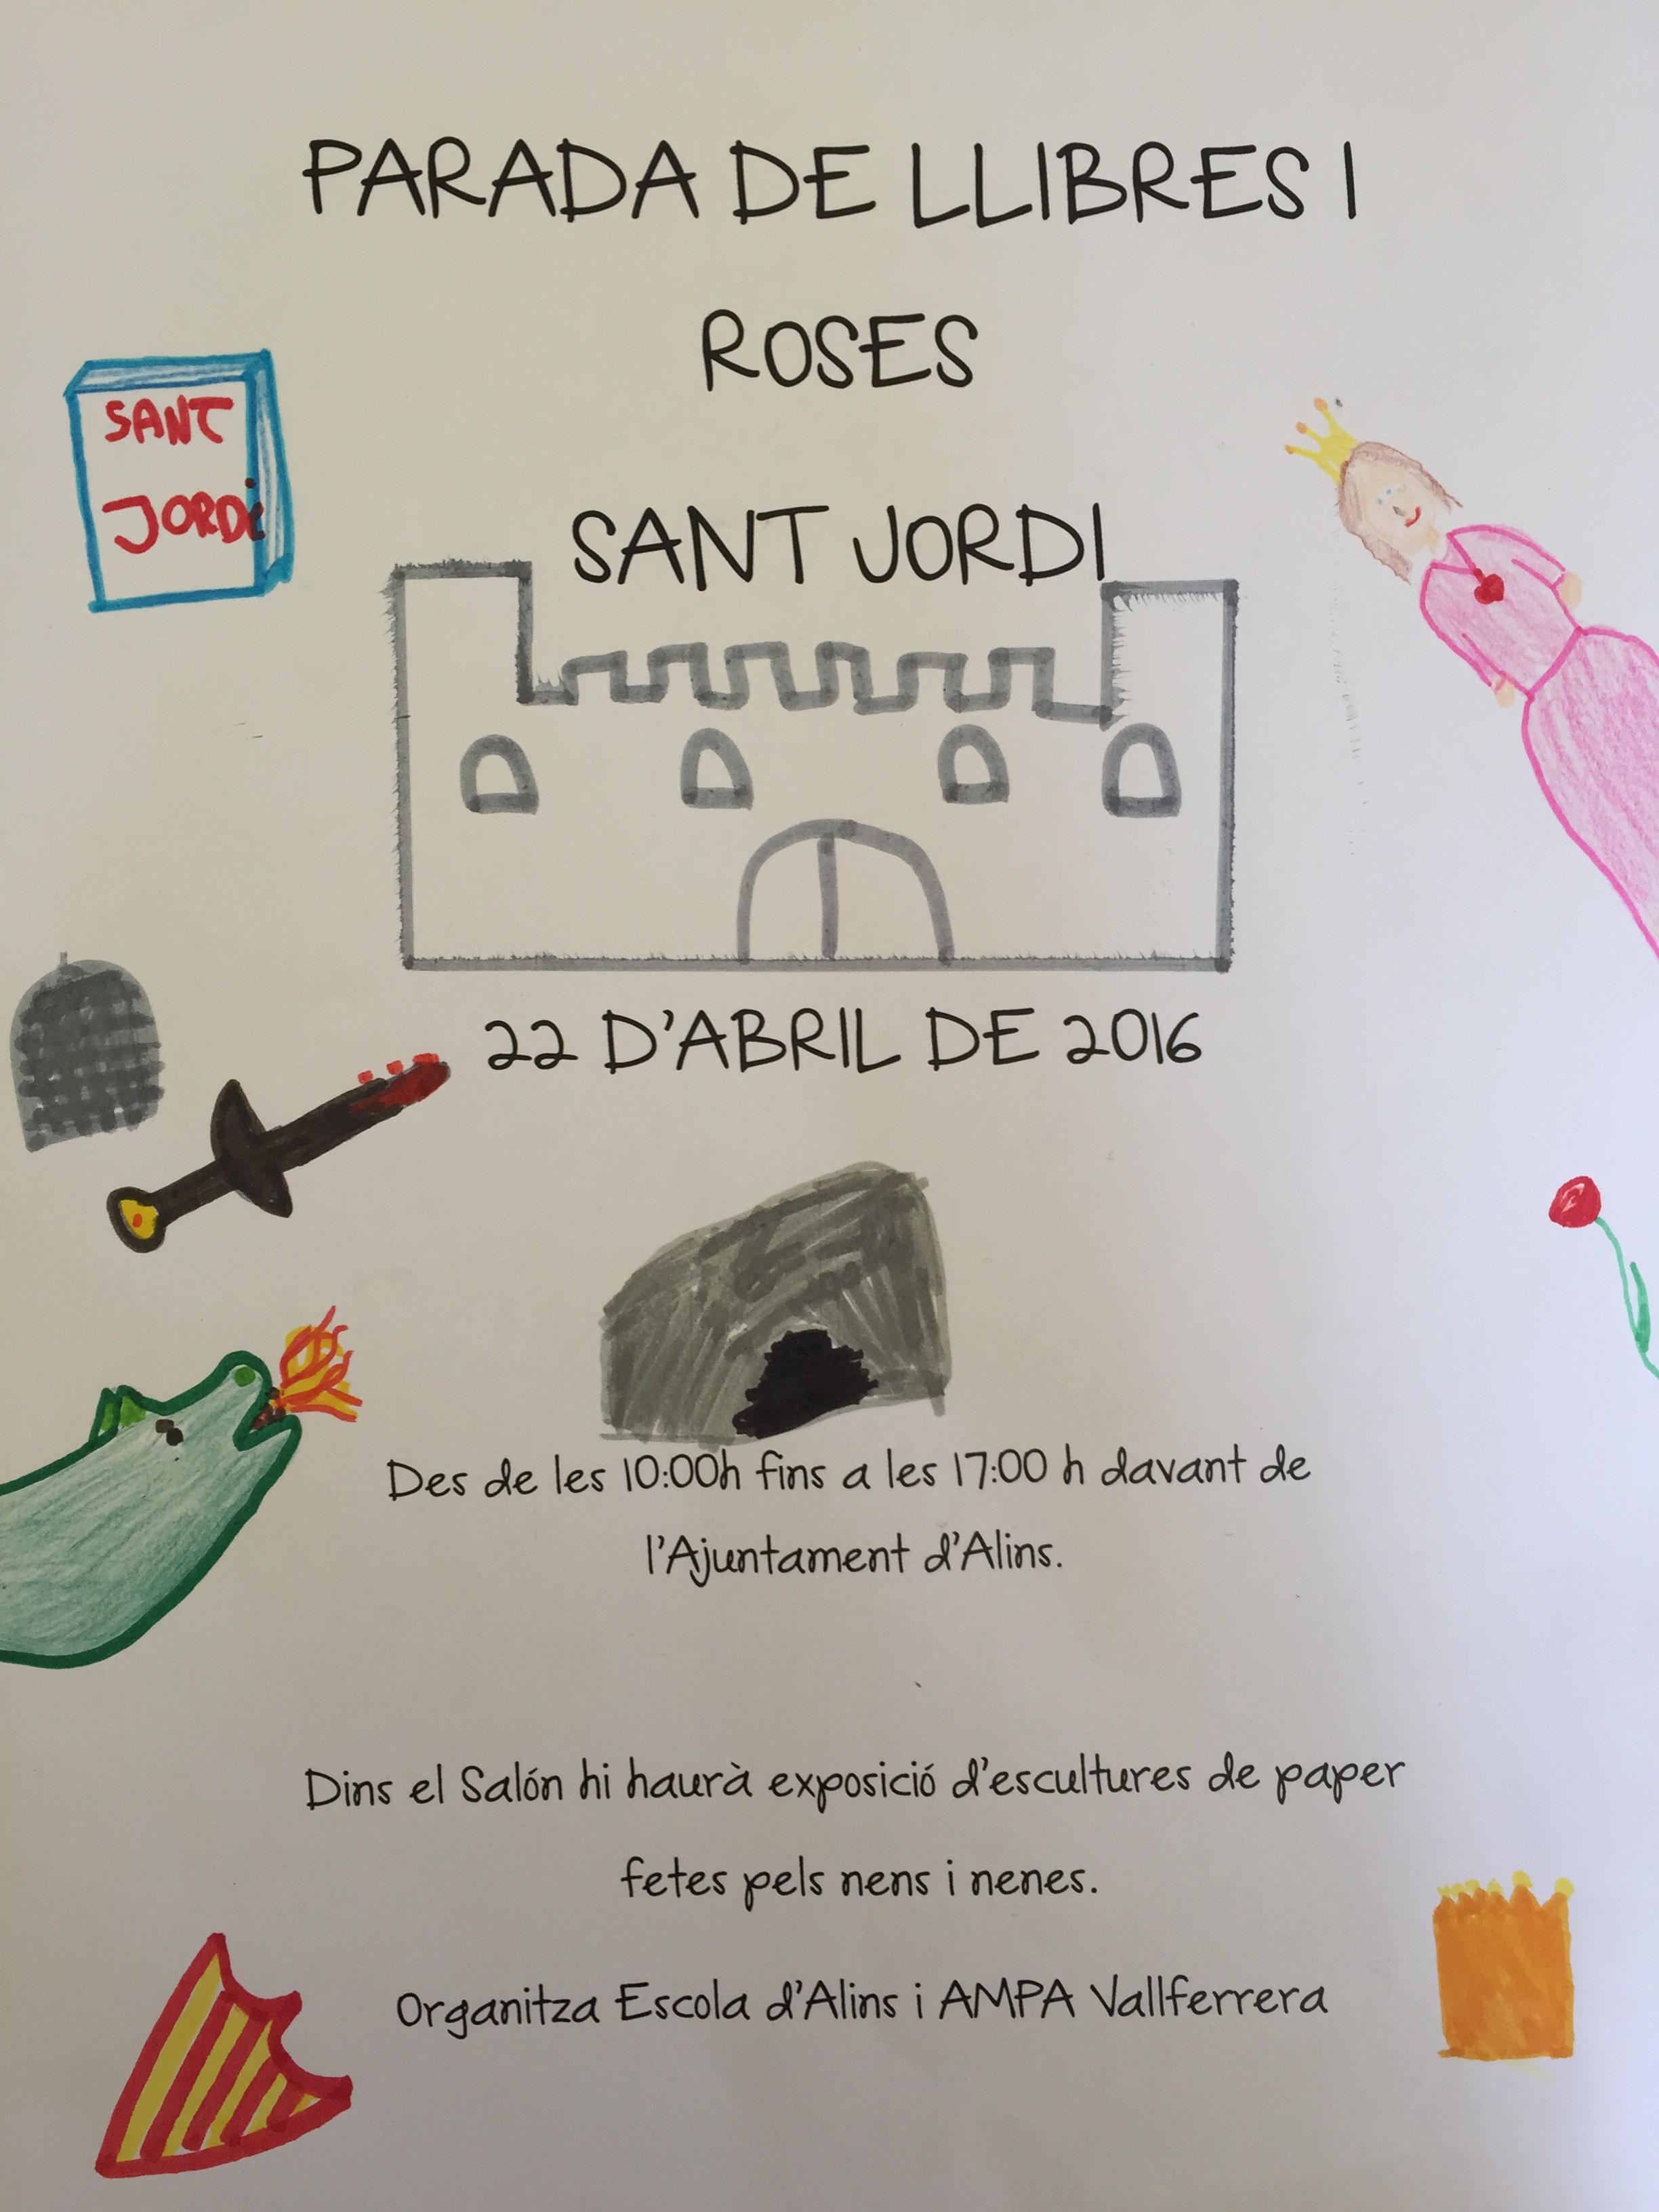 PARADA DE LLIBRES I
ROSES
SANT
JORDi
SANT JORDI
22 D'ABRIL DE 2016
Des de les 10:00h fins a les 17:00 h davant de
l'Ajuntament d'Alins.
Dins el Salón hi haurà exposició d'escultures de paper
fetes pels nens i nenes.
Organitza Escola d'Alins i AMPA Vallferrera